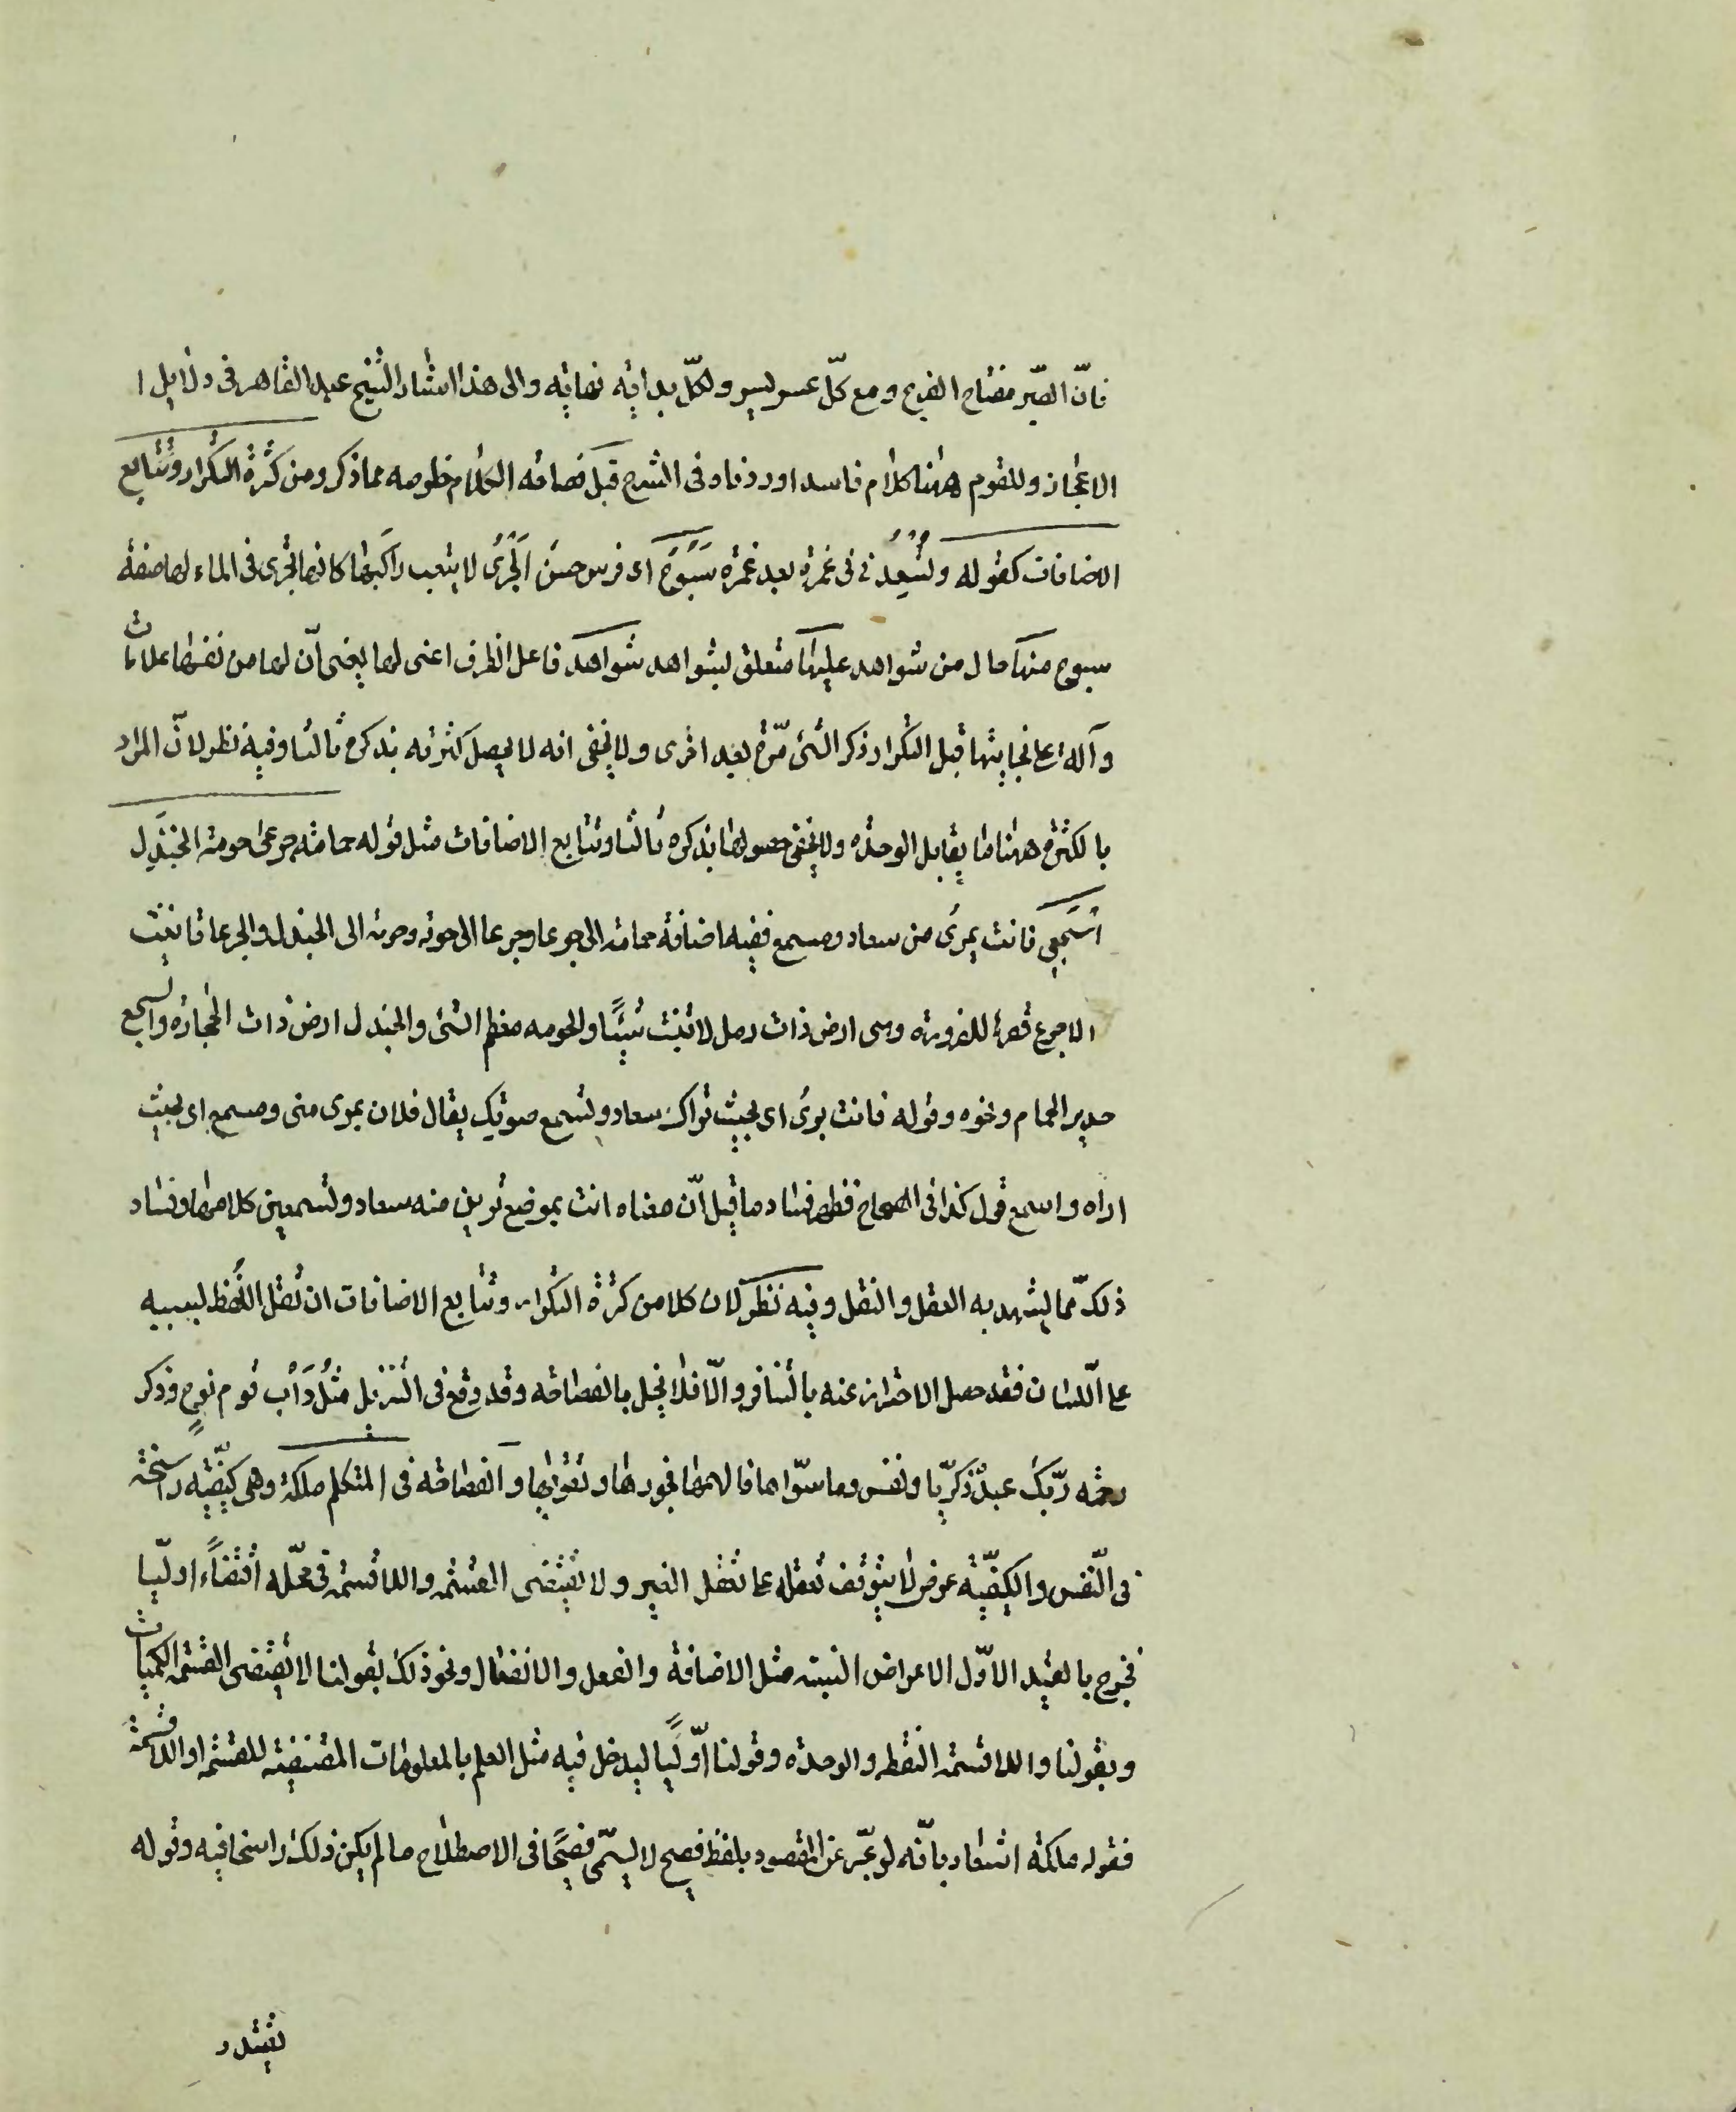 فانّ الصّبر مفتاح الفرج ومع كلّ عسر يسر ولكلّ بداية نهاية والى هذا اشار الشيخ عبد القاهر فى دلايل ا
الاعجاز وللقوم ههنا كلام فاسد اوردناه فى الشرح قيل فصاحة الكلام خلوصه مما ذكر ومن كثرة التكرار وتتابع
الاضافات كقوله وتُسْعِدُنى فى غمرة بعد غمرة سَبُوحٌ اى فرس حسن الجَرْى لا يتعب راكبها كانها تجرى فى الماء لها صفة
سبوح منها حال من شواهد عليها متعلق بشواهد شواهد فاعل الظرف اعنى لها يعنى انّ لها من نفسها علامات
وآلة على نجابتها قيل التكرار ذكر الشئ مرّة بعد اخرى ولا يخفى انه لا يحصل كثرته بذكره ثالثا وفيه نظر لانّ المراد
بالكثرة ههنا ما يقابل الوحدة ولا يخفى حصولها بذكره ثالثا وتتابع الاضافات مثل قوله حمامة جرعى حومة الجندل
اسجعى فانت بمرئ من سعاد ومسمع ففيه اضافة حمامة الى جرعا وجرعا الى حومة وحومة الى الجندل والجرعا تانيث
الاجرع قصرها للضرورة وهى ارض ذات رمل لا تنبت شيئًا والحومه معظم الشئ والجندل ارض ذات الحجارة والسجع
هدير الحمام ونحوه وقوله فانت بمرئ اى بحيث تراك سعاد وتسمع صوتك يقال فلان بمرى منى ومسمع اى بحيث
اراه واسمع قوله كذا فى الصحاح فظهر فساد ما قيل انّ معناه انت بموضع ترين منه سعاد وتسمعين كلامها وفساد
ذلك مما يشهد به العقل والنقل وفيه نظر لان كلا من كثرة التكرار وتتابع الاضافات ان ثقل اللفظ بسببه
على اللسان فقد حصل الاحتراز عنه بالتنافر والّا فلا يخل بالفصاحة وقد وقع فى التنزيل مثْلُ دَأْب قوم نوح وذكر
رحمة ربّك عبدَه زكريّا ونفس وما سوّاها فالهمها فجورها وتقواها والفصاحة فى المتكلم ملكة وهى كيفيّة راسخة
فى النّفس والكيفيّة عرض لا يتوقف تعقله على تعقل الغير ولا يقتضى القسمة واللا قسمة فى محلّه اقتضاءً اوليّا
فخرج بالقيد الاوّل الاعراض النسبية مثل الاضافة والفعل والانفعال ونحو ذلك بقولنا لا يقتضى القسمة الكميات
وبقولنا واللا قسمة النقطة والوحدة وقولنا اوّليًا ليدخل فيه مثل العلم بالمعلومات المقتضية للقسمة او اللا قسمة
فقوله ملكة اشعار بانّه لو عبّر عن المقصود بلفظ فصيح لا يسمّى فصيحًا فى الاصطلاح ما لم يكن ذلك راسخا فيه وقوله
يقتدر